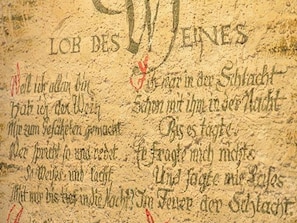 LOB DES WEINES
Weil ich allein bin
Hab ich den Wein
Mir zum Gefährten gemacht.
Wer spricht so und redet
So und lacht
mir bis in die Nacht?
Ich war in der Schlacht
Schon mit ihm in der Nacht
Bis es tagte.
Er fragte mich nichts
Und sagte mir
Im Feuer der Schlacht